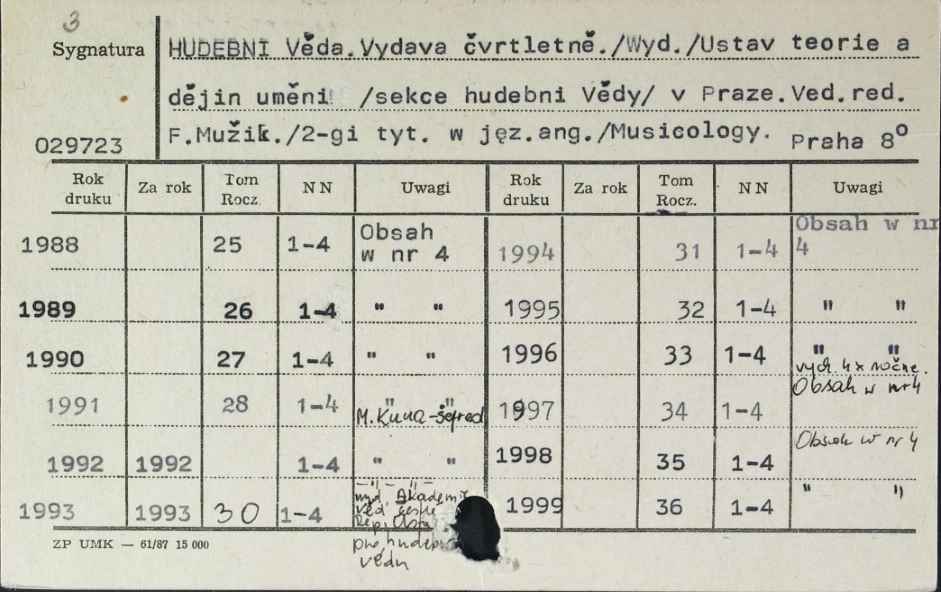 3
Sygnatura
029723
HUDEBNI Věda. Vydava čvrtletně./Wyd./Ustav teorie a
dějin uměni /sekce hudebni Vědy/ v Praze. Ved. red.
F. Mužik./2-gi tyt. w jęz. ang./Musicology. Praha 8°
Rok druku Za rok Tom Rocz. NN Uwagi Rok druku Za rok Tom Rocz. NN Uwagi
1988 25 1-4 Obsah w nr 4 1994 31 1-4 Obsah w nr 4
1989 26 1-4 " " 1995 32 1-4 " "
1990 27 1-4 " " 1996 33 1-4 " " vych. 4x ročne.
1991 28 1-4 " " M. Kuna - šefred 1997 34 1-4 Obsah w nr 4
1992 1992 1-4 " " 1998 35 1-4 Obsah w nr 4
1993 1993 30 1-4 -"- -"- Akademi 1999 36 1-4 " "
věd
Rep.
pro hudební
vědu
ZP UMK — 61/87 15 000